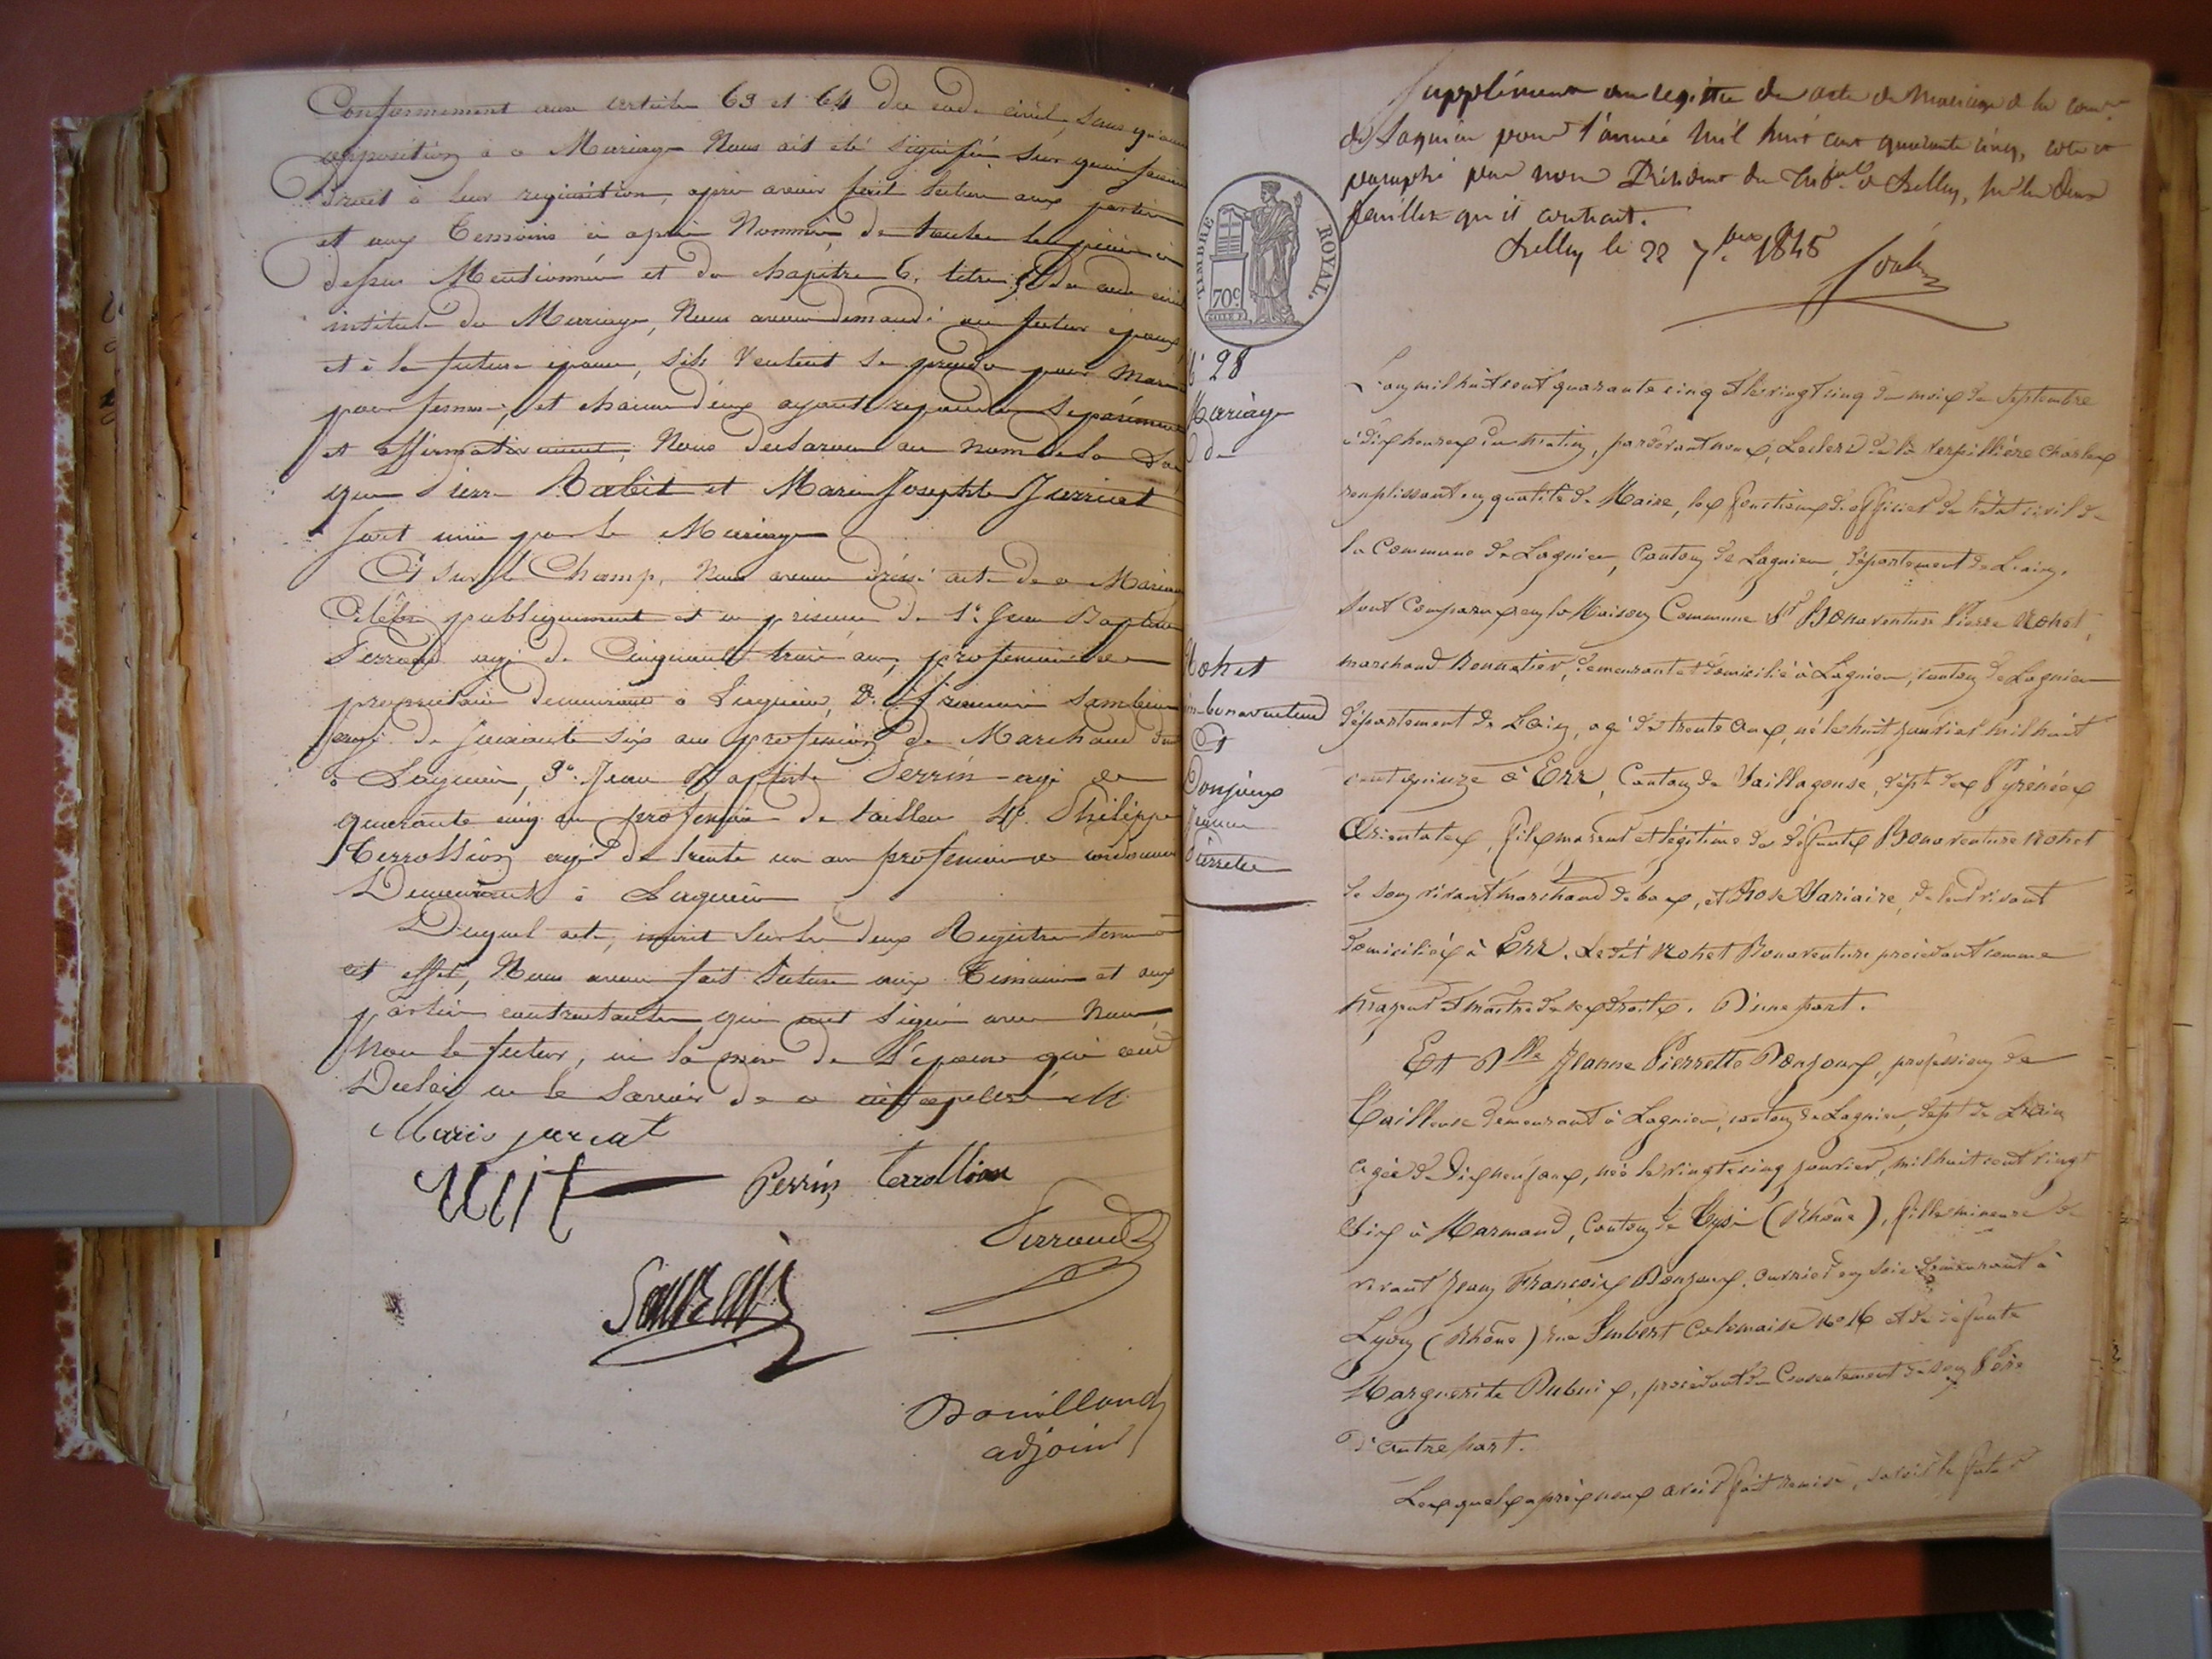 Conformement aux articles 63 et 64 du code civil, sans qu'aucune
opposition à ce Mariage Nous ait été signifiée sur quoi faisant
Droit à leur requisition, après avoir fait lecture aux parties
et aux Temoins ci après Nommés, de toutes les pièces ci
dessus Mentionnées et du chapitre 6, titre 5 du code civil
intitulé du Mariage, Nous avons demandé au futur époux
et à la future épouse, s'ils veulent se prendre pour Mari
pour femme, et chacun d'eux ayant repondu separément
et affirmativement, Nous declarons au nom de la Loi
que Pierre Rabit et Marie Josephte Jurriat
sont unis par le Mariage
Et sur le Champ, Nous avons dressé acte de ce Mariage
Célébré publiquement et en présence de 1° Jean Baptiste
Ferrand agé de Cinquante trois ans, profession de
propriétaire demeurant à Lagnieu, 2°
agé de soixante six ans profession de Marchand
à Lagnieu, 3° Jean Baptiste Perrin agé de
quarante cinq ans profession de tailleur 4° Philippe
Terrollion agé de trente un ans profession de
Demeurant à Lagnieu
Duquel acte, inscrit sur les deux Registres tenus à
cet effet, Nous avons fait lecture aux Temoins et aux
parties contractantes qui ont signé avec Nous,
Non le futur, ni la mère de l'épouse qui ont
Déclaré ne le savoir de ce
Marie jurriat
Perrin Terrollion
Ferrand
Bouilloud
adjoint
Supplément au registre des actes de Mariage de la comne
de Lagnieu pour l'année mil huit cent quarante cinq, coté et
paraphé par nous Président du Tribal de Belley, sur les deux
feuilles qu'il contient.
Belley le 22 7bre 1845
TIMBRE ROYAL.
70c
N° 28
Mariage
de
Nohet
Bonaventure
Et
Donjoux
Jeanne
Pierrette
L'an mil huit cent quarante cinq et le vingt cinq du mois de Septembre
à dix heures du Matin, pardevant nous, Leclerc de la Verpillière Charles
remplissant en qualité de Maire, les fonctions d'officier de l'état civil de
la Commune de Lagnieu, Canton de Lagnieu, département de L'ain,
Sont Comparus en la Maison Commune Sr Bonaventure Pierre Nohet,
marchand Bonnetier, demeurant et domicilié à Lagnieu, canton de Lagnieu
département de L'ain, agé de trente ans, né le huit janvier mil huit
cent quinze à Err, Canton de Saillagouse, dépt des Pyrénées
Orientales, fils majeur et légitime de défunts Bonaventure Nohet
de son vivant marchand de bas, et Rose Variaire, de leur vivant
domiciliés à Err. Ledit Nohet Bonaventure procédant comme
majeur et maître de ses droits. D'une part.
Et Dlle Jeanne Pierrette Donjoux, profession de
Tailleuse demeurant à Lagnieu, canton de Lagnieu, dépt de L'ain
agée de Dix neuf ans, née le vingt cinq janvier, mil huit cent vingt
six à Marmand, Canton de (Rhône), fille mineure de
vivant Jean François Donjoux, ouvrier en soie demeurant à
Lyon (Rhône) rue Imbert Colomais No 16 et de défunte
Marguerite Dubuis, procédant du Consentement de son Père
D'autre part.
Lesquels après nous avoir fait remise, savoir le futur